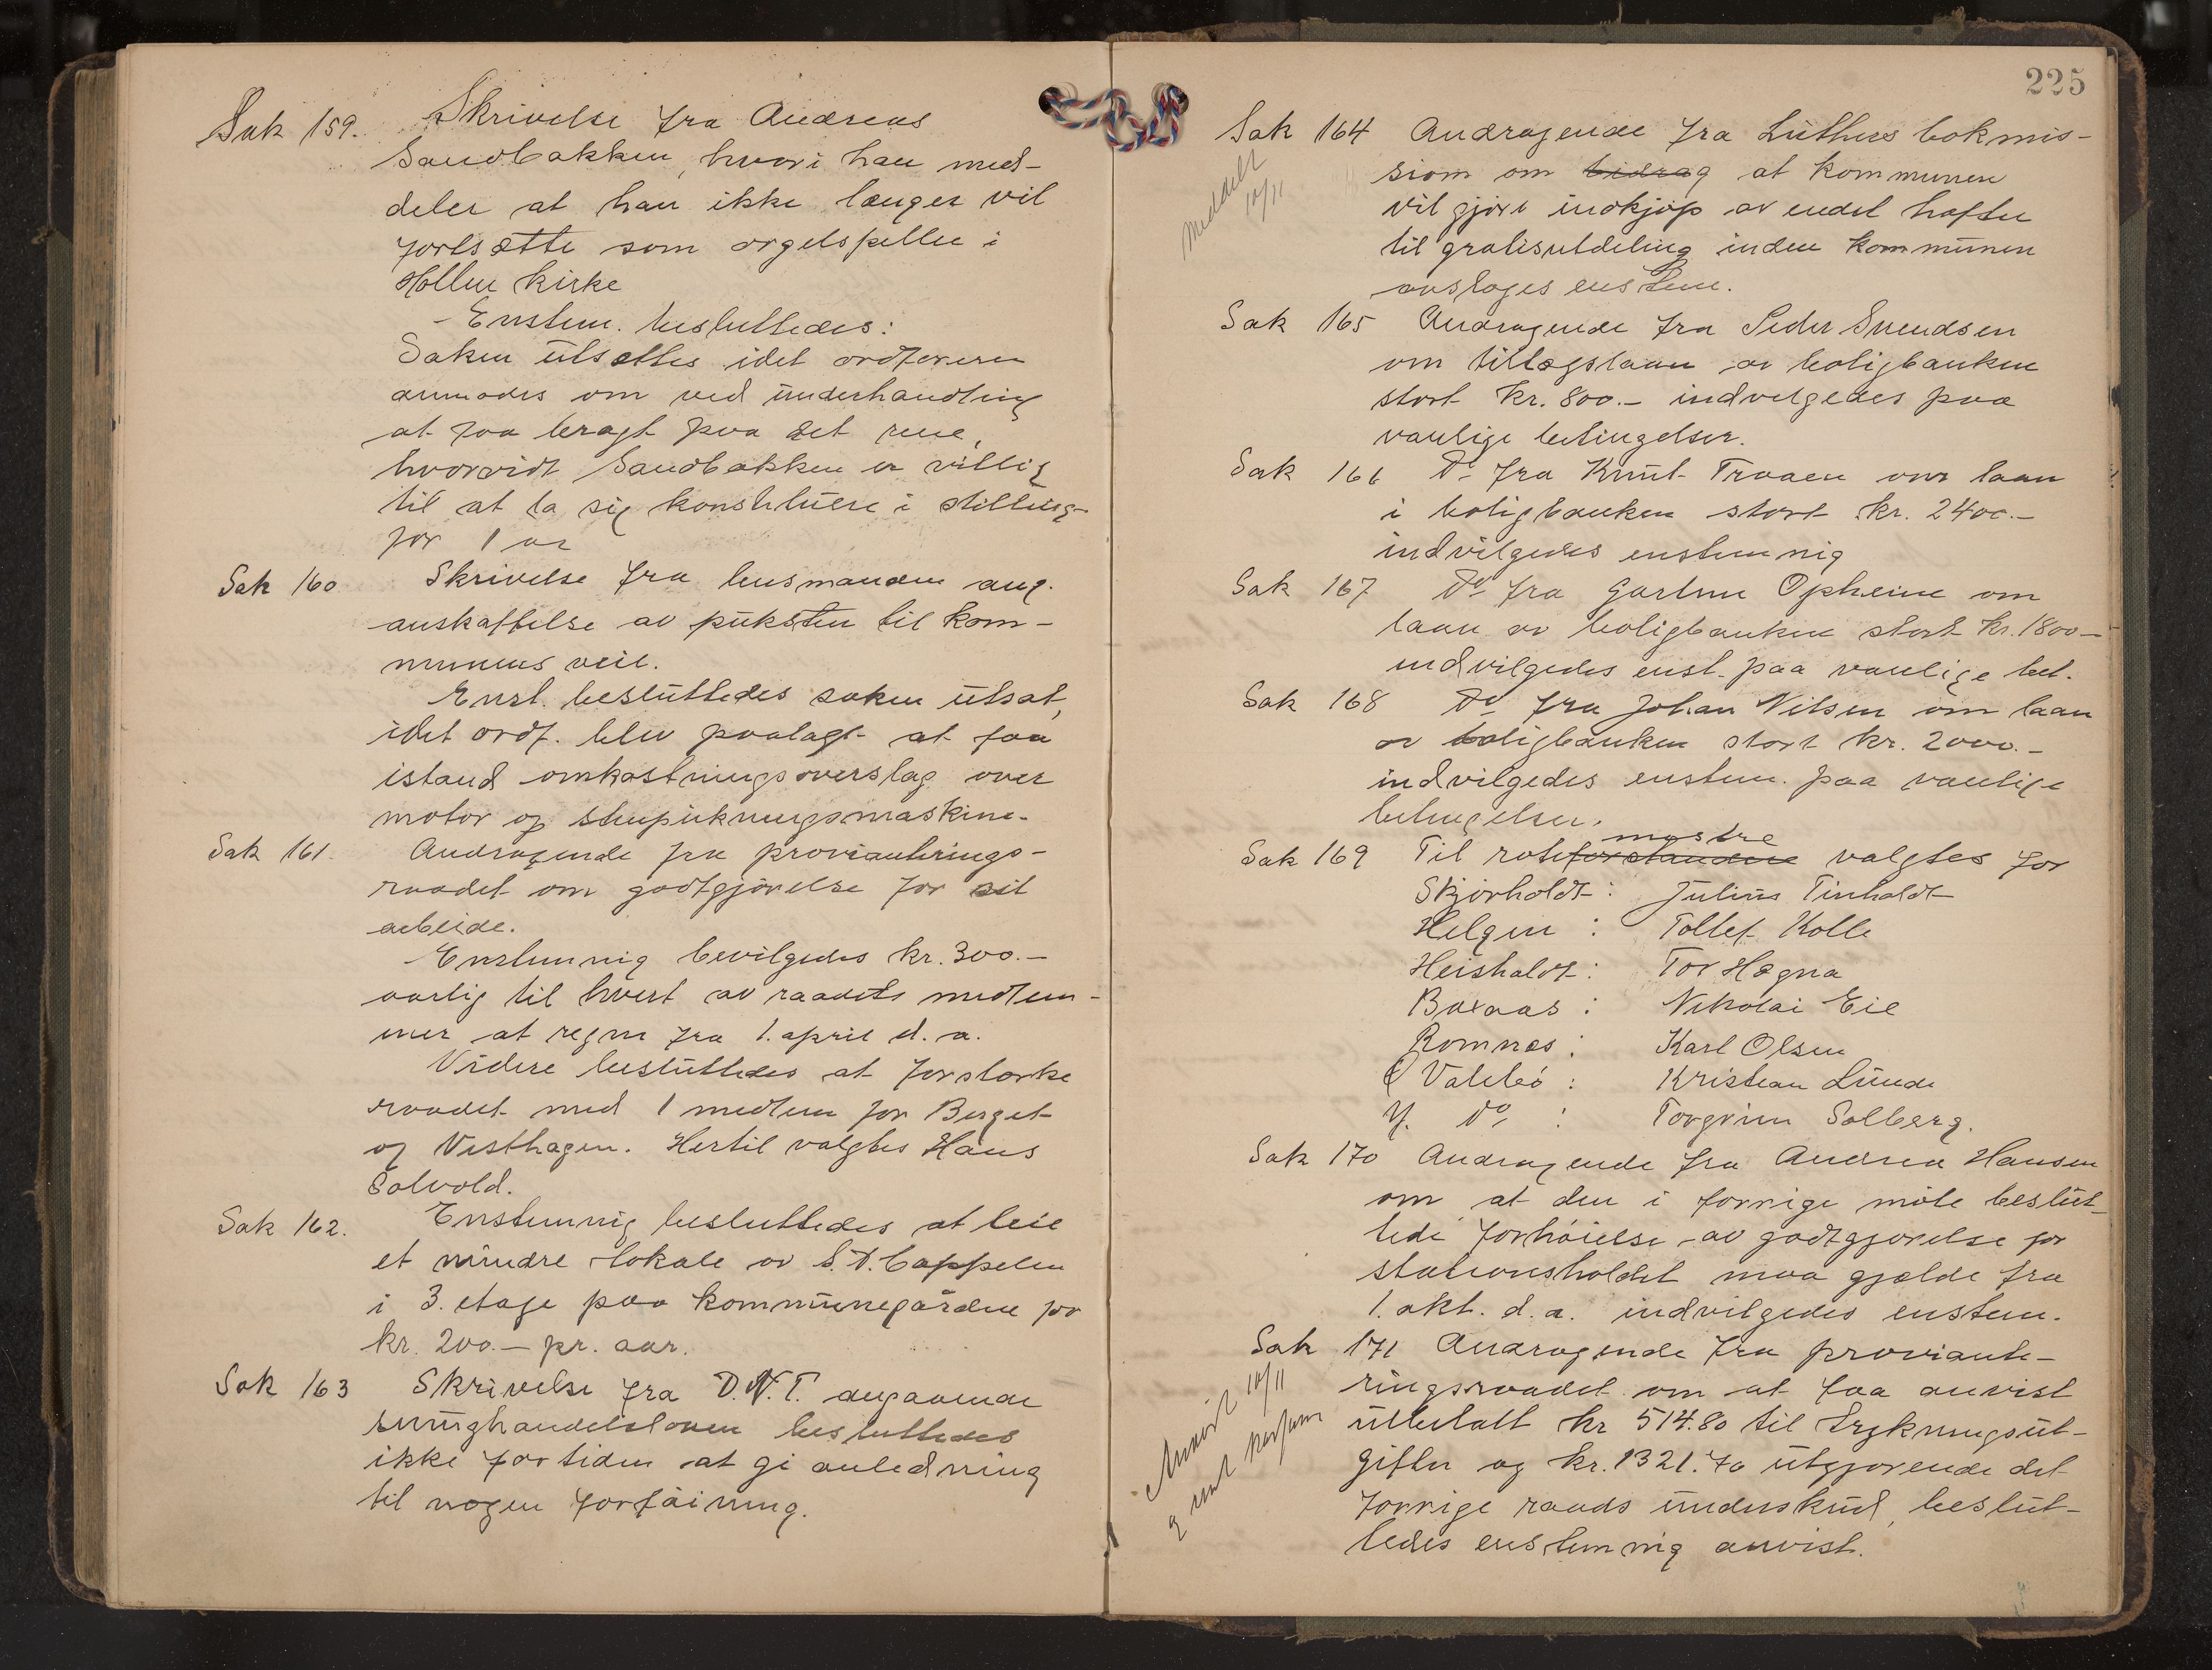 Sak 159. Skrivelse fra Andreas
Sandbakken, hvori han med-
deler at han ikke længer vil
fortsætte som orgelspiller i
Hollen kirke
- Enstem. besluttedes:
Saken utsættes idet ordføreren
anmodes om ved underhandling
at faa bragt paa det rene,
hvorvidt Sandbakken er villig
til at la sig konstituere i stilling
for 1 aar
Sak 160 Skrivelse fra lensmanden ang.
anskaffelse av puksten til kom-
munens veie.
Enst. besluttedes saken utsat,
idet ordf. blev paalagt at faa
istand omkostningsoverslag over
motor og stenpukningsmaskine.
Sak 161. Andragende fra provianterings-
raadet om godtgjørelse for sit
arbeide.
Enstemmig bevilgedes kr. 300.-
aarlig til hvert av raadets medlem-
mer at regne fra 1. april d. a.
Videre besluttedes at forstærke
raadet med 1 medlem for Berget
og Vesthagen. Hertil valgtes Hans
Solvold.
Sak 162. Enstemmig besluttedes at leie
et mindre lokale av S. D. Cappelen
i 3. etage paa kommunegården for
kr. 200.- pr. aar.
Sak 163 Skrivelse fra D.N.T. angaaende
smughandelsloven besluttedes
ikke for tiden at gi anledning
til nogen forføining.
225
Sak 164 Andragende fra Luthers bokmis-
sion om bidrag at kommunen
meddelt 10/11
vil gjøre indkjøp av endel hefter
til gratisutdeling inden kommunen
avslages enstem.
Sak 165 Andragende fra Peder Svendsen
om tillægslaan av boligbanken
stort kr. 800.- indvilgedes paa
vanlige betingelser.
Sak 166 Do fra Knut Traaen om laan
i boligbanken stort kr. 2400.-
indvilgedes enstemmig
Sak 167 Do fra Gartner Opheim om
laan av boligbanken stort kr. 1800-
indvilgedes enst. paa vanlige bet.
Sak 168 Do fra Johan Nilsen om laan
av boligbanken stort kr. 2000.-
indvilgedes enstem. paa vanlige
betingelser.
mestre
Sak 169 Til roteforstandere valgtes for
Skjørholdt: Julius Tinholdt
Helgen : Tollef Kolle
Heisholdt: Tor Hogna
Baxaas : Nikolai Eie
Romnes : Karl Olsen
Ø Valebø : Kristian Lunde
Y. Do : Torgrim Solberg.
Sak 170 Andragende fra Andrea Hansen
om at den i forrige møte beslut-
tede forhøielse av godtgjørelse for
stationsholdet maa gjælde fra
1. okt. d. a. indvilgedes enstem.
Sak 171 Andragende fra proviante-
ringsraadet om at faa anvist
Anvist 10/11
utbetalt kr 514.80 til trykningsut-
gifter og kr. 1321.70 utgjørende det
forrige raads underskud, beslut-
tedes enstemmig anvist.